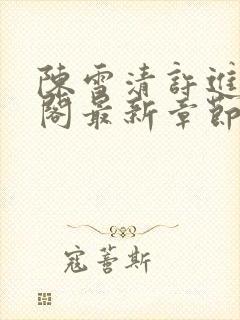 陳雪清許進
閣最新章節
寇薈斯